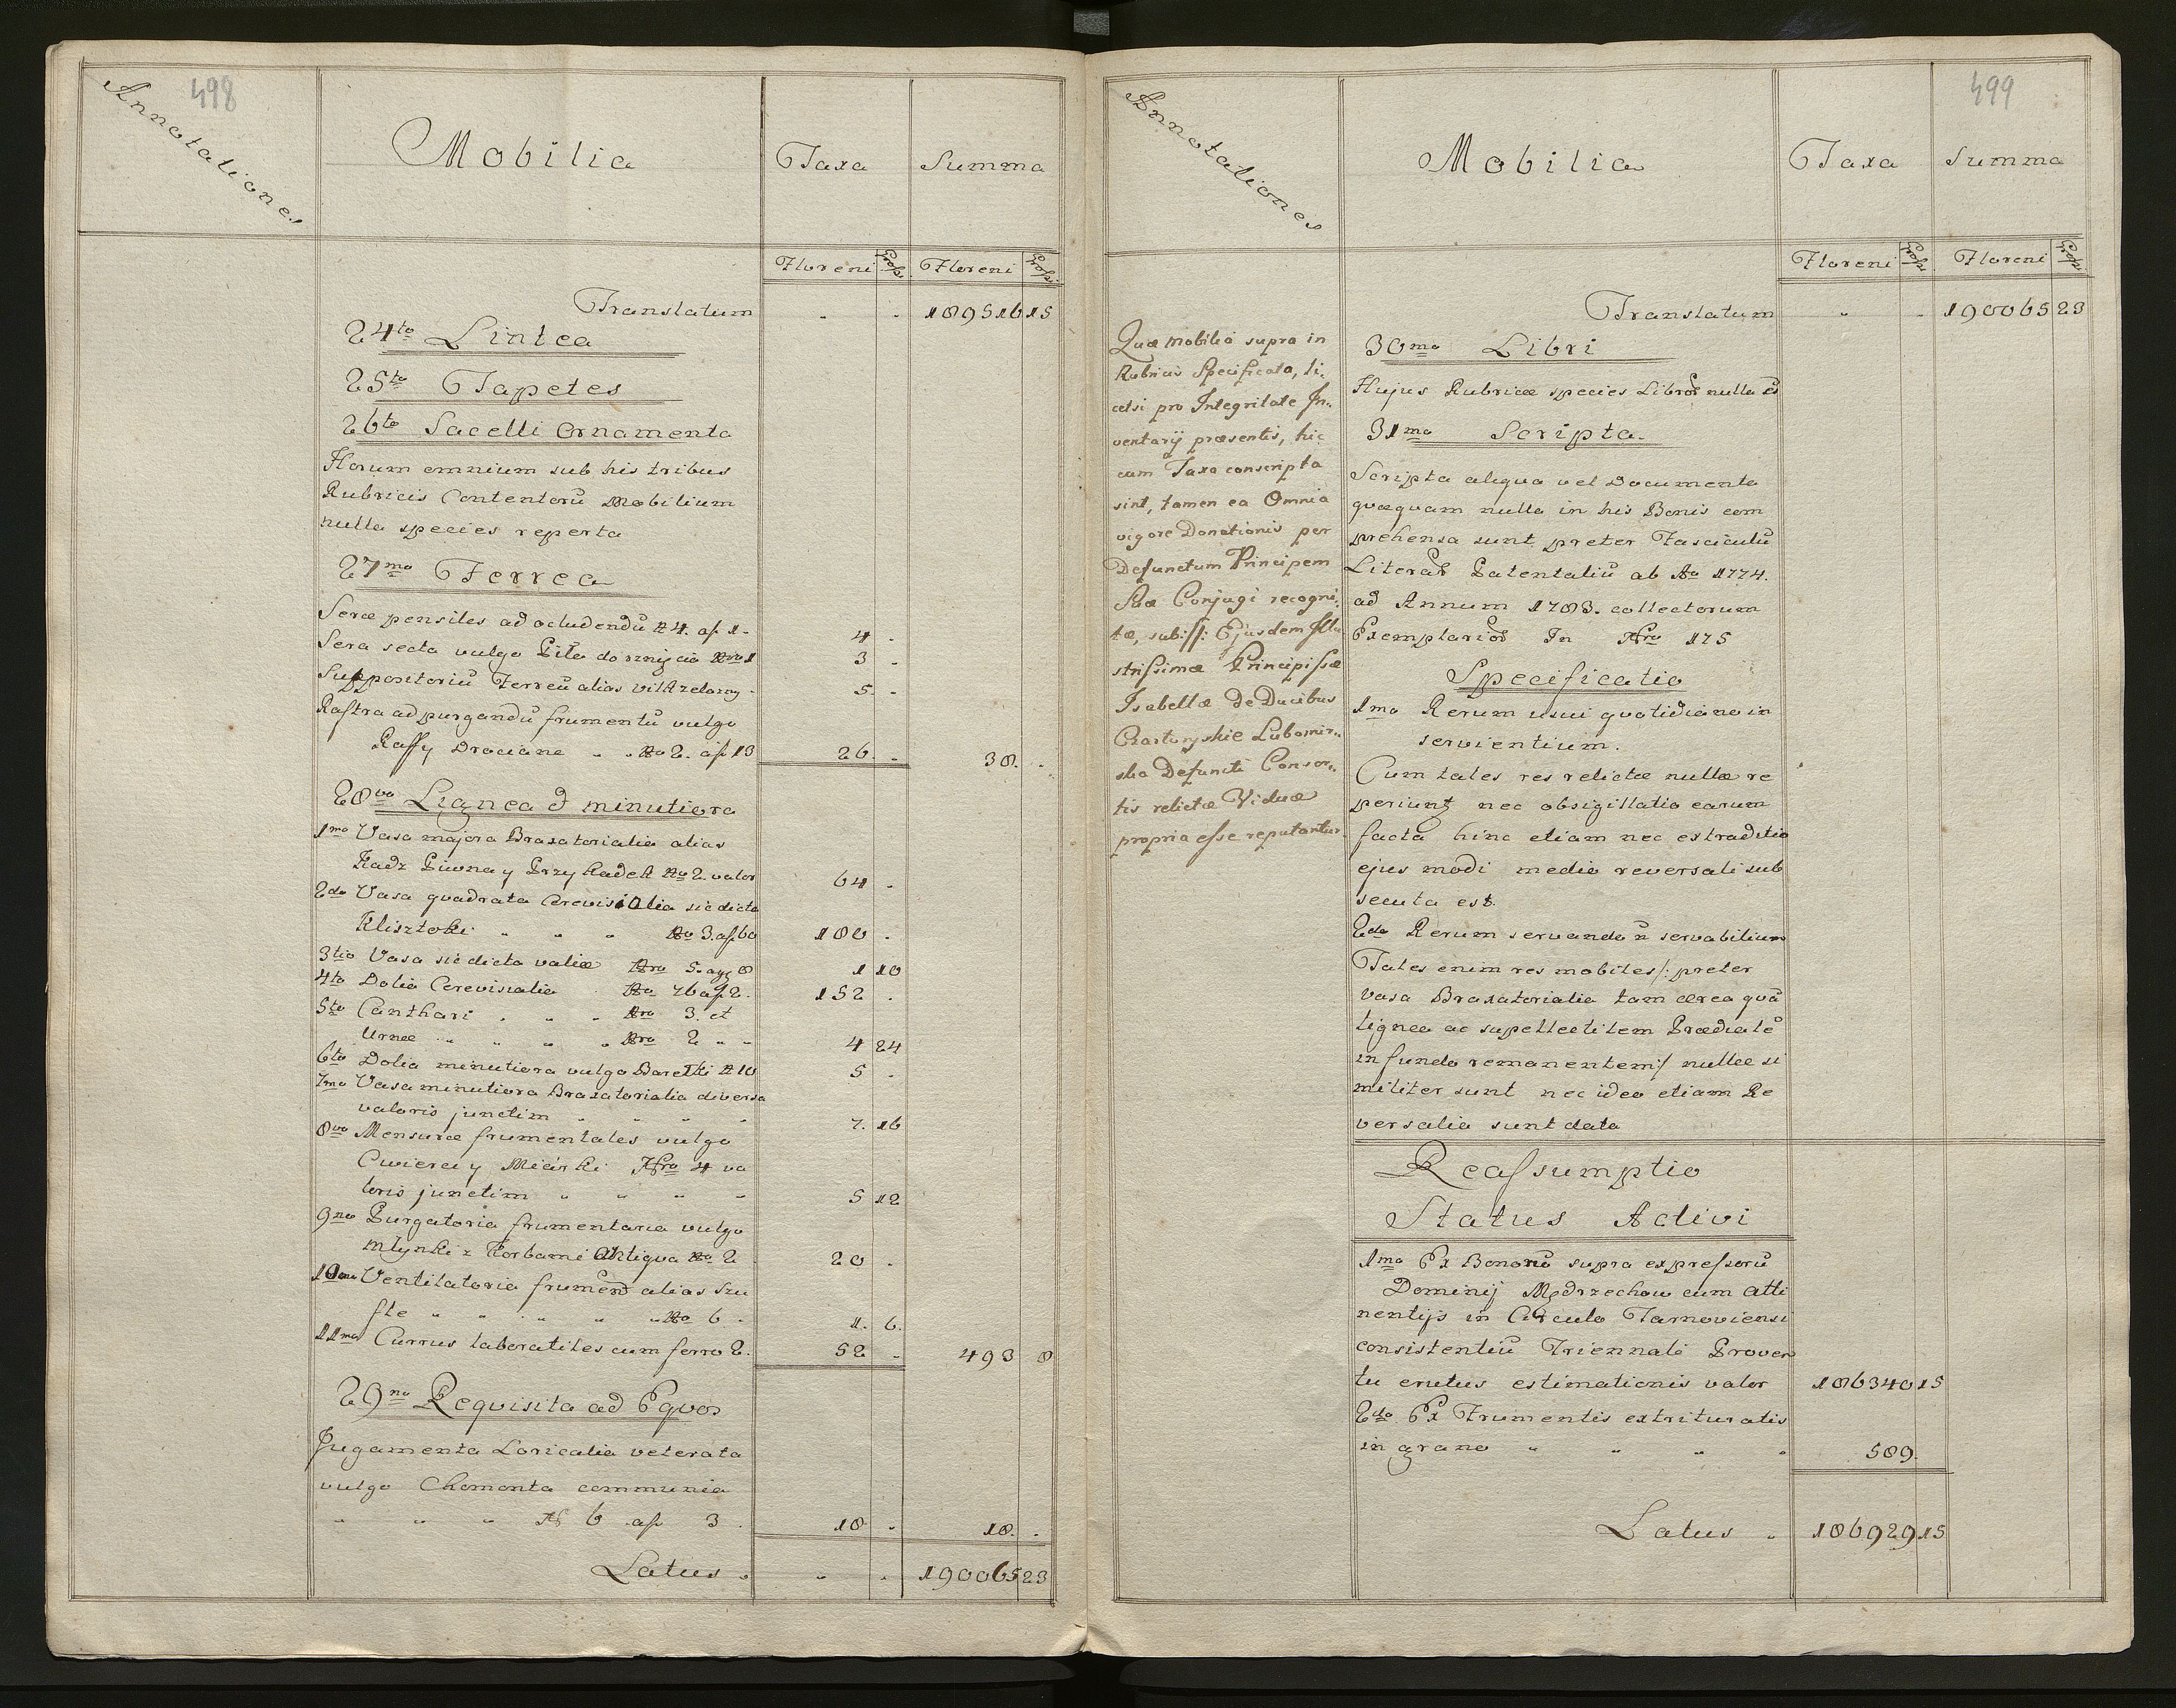 498
Annotationes
Mobilia
Taxa
Summa
Floreni
Grossi
Floreni
Grossi
Translatum " " 189516 15
24to Lintea
25to Tapetes
26to Sacelli Ornamenta
Horum omnium sub his tribus
Rubricis Contentorū Mobilium
nulla species reperta
27mo Ferrea
Seræ pensiles ad ocludendū N 4. af 1- 4 -
Sera secta vulgo Piła do rznięcia Nro 1 3 -
Suppositoriū Ferreū alias Wilk zelazny - 5 - -
Rastra ad purgandū frumentū vulgo
Raffy Druciane " " No 2. af 13 26. - 38. -
28vo Lignea & minutiora
1mo Vasa majora Braxatorialia alias
Kadz Piwna y Przykadek No 2. valor 64 -
2do Vasa quadrata Cerevisialia sic dicta
Klisztoki " " " No 3. af 60 180 -
3tio Vasa sic dicta valiæ Nro 5. a gg 8 1 10
4to Dolia Cerevisialia No 76 af 2. 152 .
5to Canthari . " " Nro 3. et
Urnæ " " " " Nro 2 " " 4 24
6to Dolia minutiora vulgo Baretki N 10 5 -
7mo Vasa minutiora Braxatorialia diversa
valoris junctim " " " " 7. 16
8vo Mensuræ frumentales vulgo
Cwierci y Miarki Nro 4 va
loris junctim " " " " 5 12
9no Purgatoria frumentaria vulgo
Młynki z Korbami Antiqua No 2 20 -
10mo Ventilatoria frument alias Szu
fle " " " " " No 6 - 1. 6.
11mo Currus laboratiles cum ferro 2. 52 - 493 8
29no Requisita ad Equos
Jugamenta Loricalia veterata
vulgo Chomonta communia
" " " N 6 af 3. 18 - 18. -
Latus " " " 190065 23
499
Annotationes
Mobilia
Taxa
Summa
Floreni
Grossi
Floreni
Grossi
Translatum " " 190065 23
Quæ mobilia supra in
Rubricis Specificata, li„
cetsi pro Integritate In„
ventarij præsentis, hic
cum Taxa conscripta
sint, tamen ea Omnia
vigore Donationis per
Defunctum Principem
Suæ Conjugi recogni„
tæ, Ejusdem Illu
strissimæ Principissæ
Isabellæ de Ducibus
Czartoryskie Lubomir„
ska Defuncti Consor„
tis relictæ Viduæ
propria esse reputantur.
30mo Libri
Hujus Rubricæ species Libror nulla ē
31mo Scripta.
Scripta aliqua vel Documenta
quæquam nulla in his Bonis com
prehensa sunt preter Fasciculū
Literar Patentaliū ab Ao 1774.
ad Annum 1783. collectorum
Exemplarior In Nro 175
Specificatio
1mo Rerum usui quotidiano in
servientium.
Cum tales res relictæ nullæ re
periunt nec obsigillatio earum
facta hinc etiam nec extraditio
ejus modi medio reversali sub
secuta est.
2do Rerum servando n servabilium
Tales enim res mobiles /: preter
vasa Braxatorialia tam ærea quā
lignea ac supellectilem Prædialē
in fundo remanentem :/ nullæ si
militer sunt nec ideo etiam Re
versalia sunt data
Reassumptio
Status Activi
1mo Ex Bonorū supra expressorū
Dominij Mędrzechow cum atti
nentijs in Circulo Tarnoviensi
consistentiū Triennali Proven
tu erutus estimationis valor 186340 15
2do Ex Frumentis extrituratis
in grano " " " " 589.
Latus " 186929 15